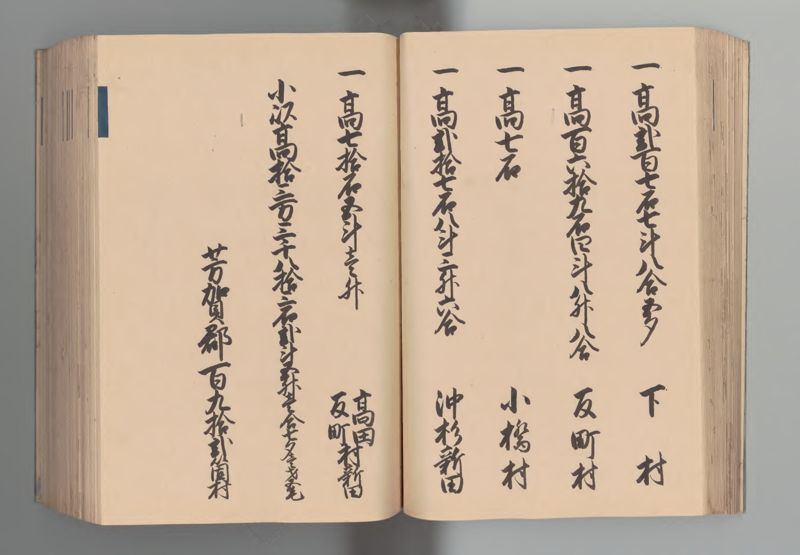 一高弐百七石七斗八合五夕 下村
一高百六拾九石四斗八升八合 反町村
一高七石 小橋村
一高弐拾七石八斗二升六合 沖杉新田
一高七拾石五斗壱升 高田反町村新田
小以高拾三万三千八拾六石弐斗五升壱合七夕
芳賀郡一百九拾弐箇村